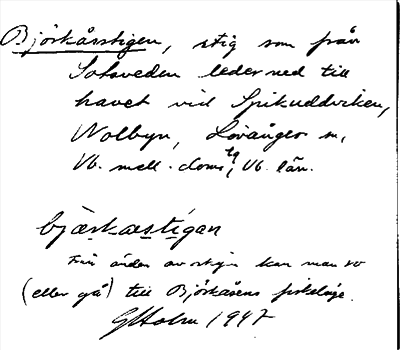 Björkåsstigen, stig som från
Sotsveden leder ned till
havet vid Spikuddviken,
Nolbyn, Lövånger sn,
Vb. mell. doms tg, Vb. län.
bjæṟkæstigan
Från änden av stigen kan man ro
(eller gå) till Björkåsens fiskeläge.
GHolm 1947